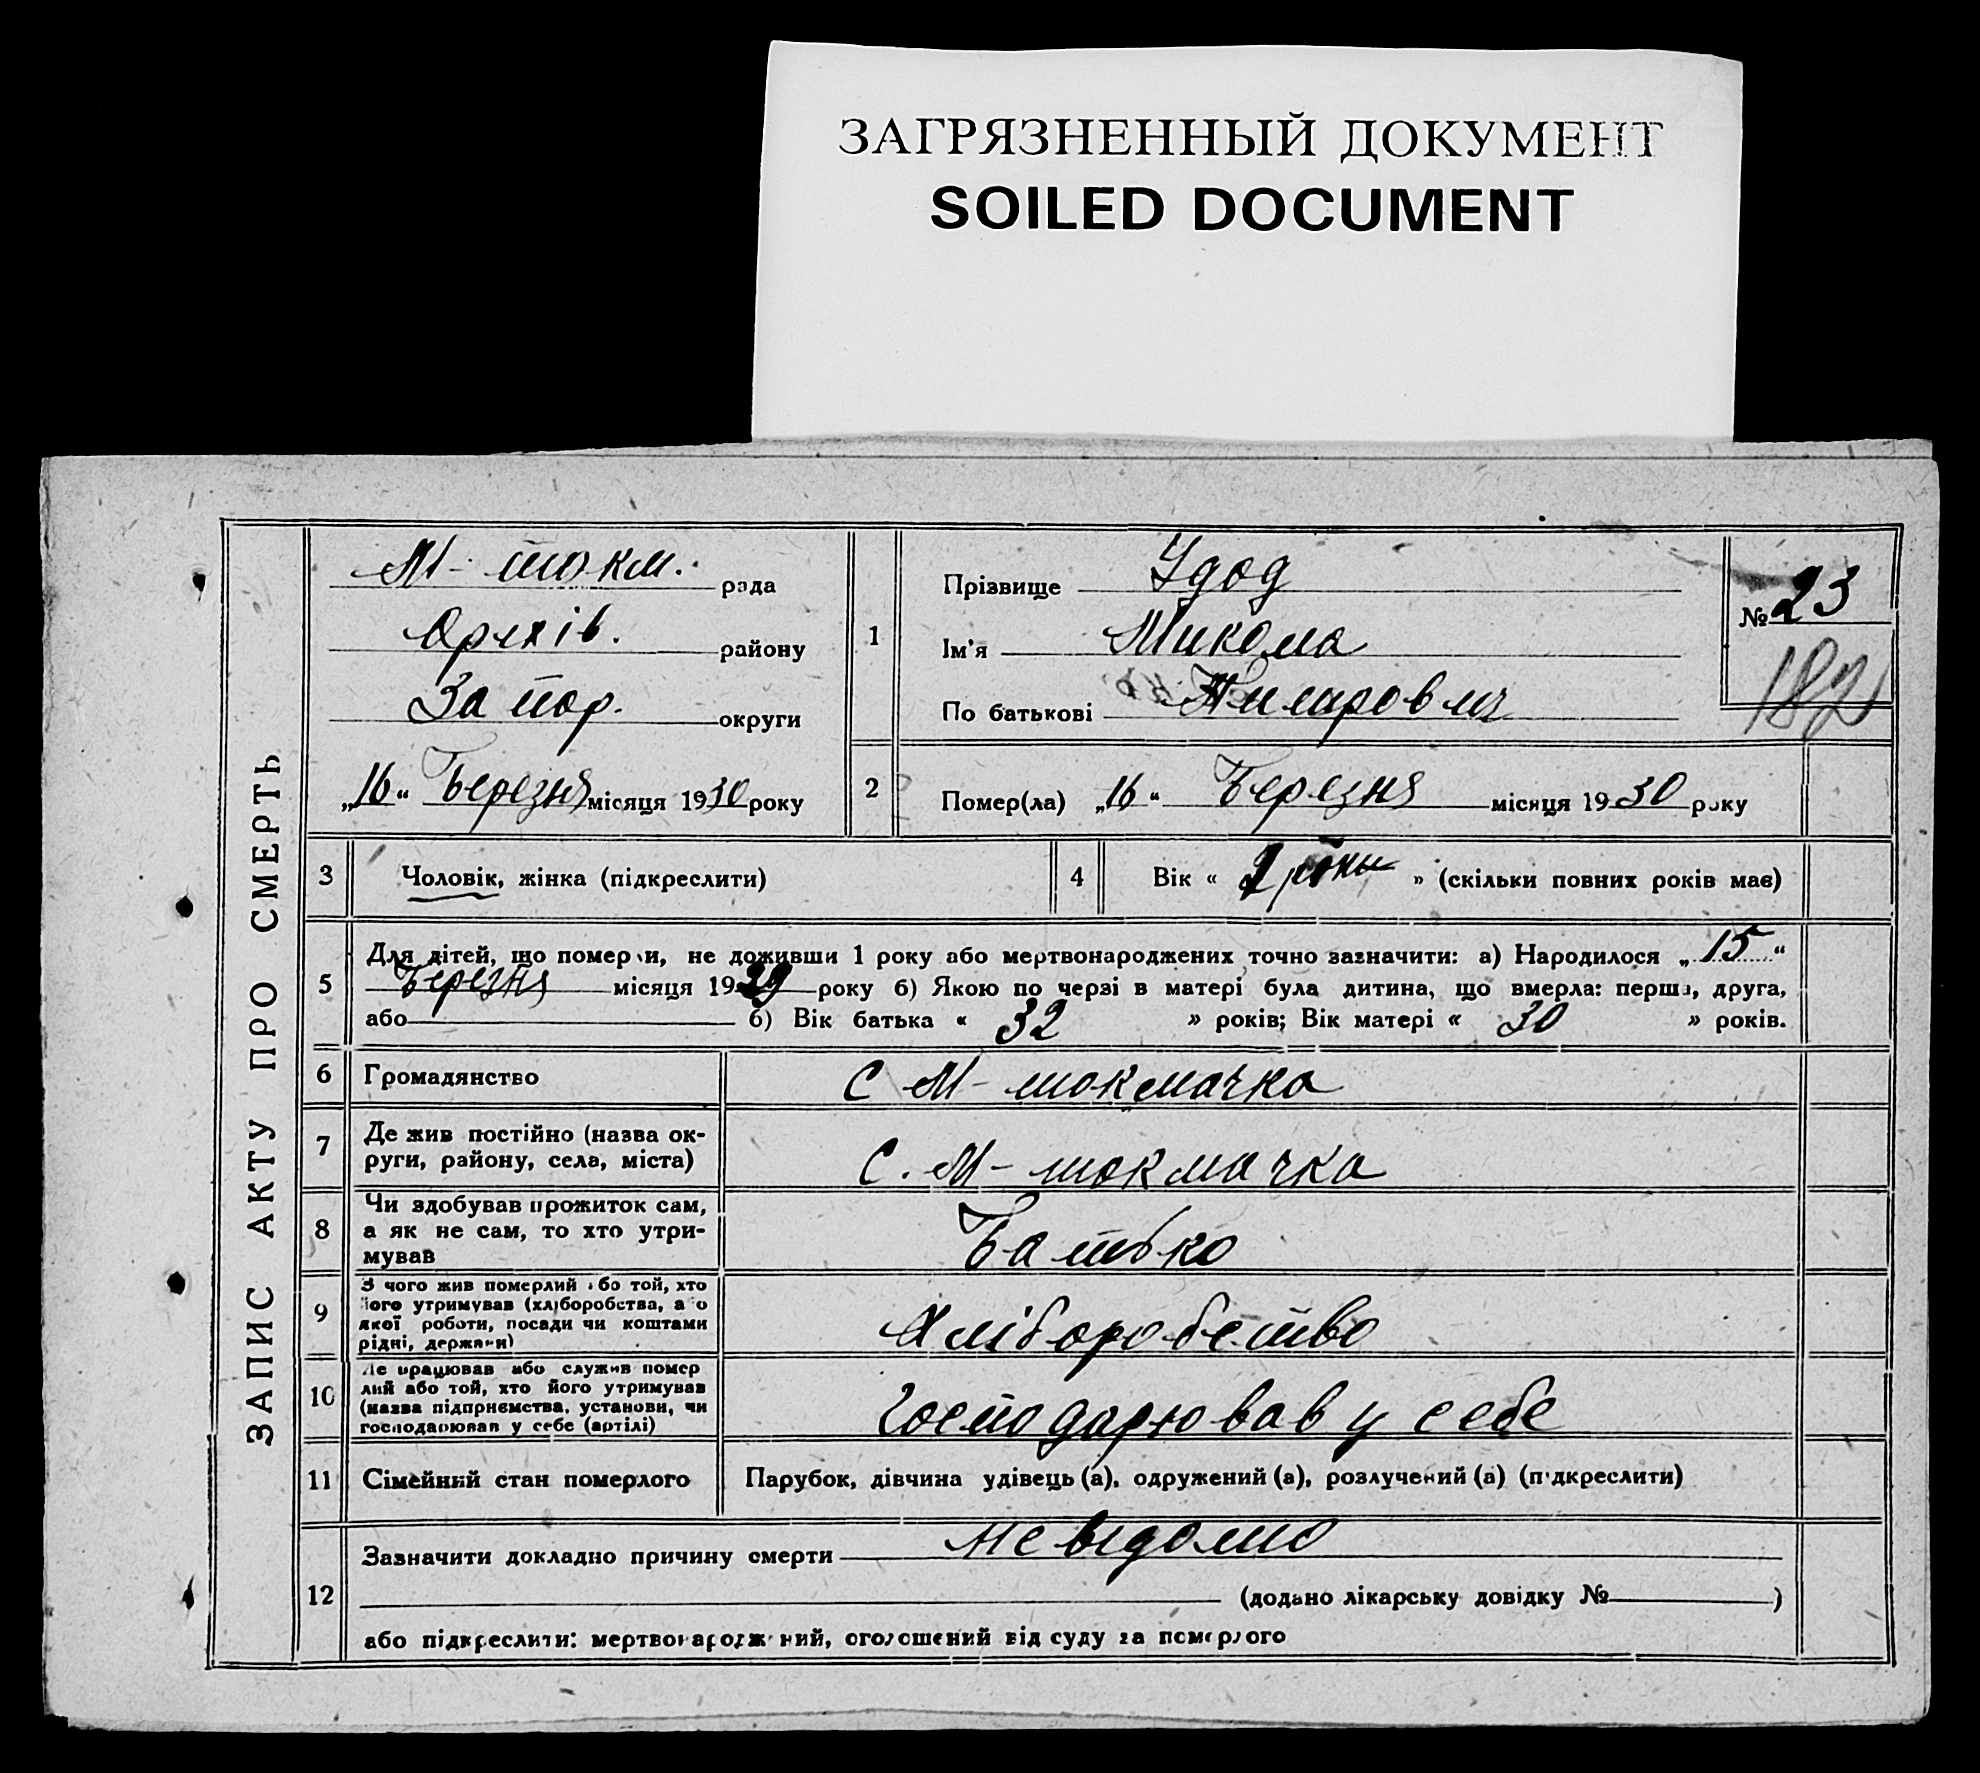 ЗАГРЯЗНЕННЫЙ ДОКУМЕНТ
SOILED DOCUMENT
ЗАПИС АКТУ ПРО СМЕРТЬ
М-токм. рада
Оріхів. району
Запор. округи
„16“ Березня місяця 1930 року
1
Прізвище Удод
Ім'я Микола
По батькові
№ 23
182
2
Помер(ла) „16“ Березня місяця 1930 року
3 Чоловік, жінка (підкреслити)
4 Вік « роки » (скільки повних років має)
5 Для дітей, що померли, не доживши 1 року або мертвонароджених точно зазначити: а) Народилося „15“
Березня місяця 1929 року б) Якою по черзі в матері була дитина, що вмерла: перша, друга,
або б) Вік батька « 32 » років; Вік матері « 30 » років.
6 Громадянство с М-токмачка
7 Де жив постійно (назва ок-
руги, району, села, міста) с. М-токмачка
8 Чи здобував прожиток сам,
а як не сам, то хто утри-
мував Батько
9 З чого жив померлий або той, хто
його утримував (хліборобства, або
якої роботи, посади чи коштами
рідні, держави) Хліборобство
10 Де працював або служив помер
лий або той, хто його утримував
(назва підприємства, установи, чи
господарював у себе (артілі) Господарював у себе
11 Сімейний стан померлого Парубок, дівчина удівець (а), одружений (а), розлучений (а) (підкреслити)
12 Зазначити докладно причину смерти не відомо
(додано лікарську довідку № )
або підкреслити: мертвонароджений, оголошений від суду за померлого